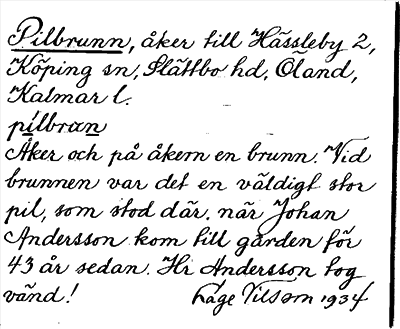 Pilbrunn, åker till Hässleby 2,
Köping sn, Slättbo hd, Öland,
Kalmar l.
pilbran
Åker och på åkern en brunn. Vid
brunnen var det en väldigt stor
pil, som stod där. när Johan
Andersson kom till gården för
43 år sedan. Hr Andersson tog
vänd! Låge Tilsom 1934